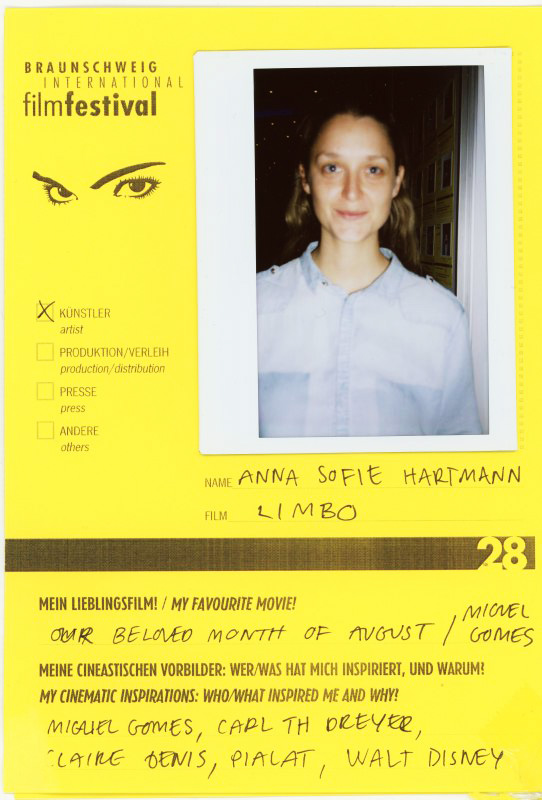 BRAUNSCHWEIG
INTERNATIONAL
filmfestival
X KÜNSTLER
artist
PRODUKTION/VERLEIH
production/distribution
PRESSE
press
ANDERE
others
NAME ANNA SOFIE HARTMANN
FILM LIMBO
28
MEIN LIEBLINGSFILM! / MY FAVOURITE MOVIE!
OUR BELOVED MONTH OF AUGUST / MIGUEL GOMES
MEINE CINEASTISCHEN VORBILDER: WER/WAS HAT MICH INSPIRIERT, UND WARUM?
MY CINEMATIC INSPIRATIONS: WHO/WHAT INSPIRED ME AND WHY?
MIGUEL GOMES, CARL TH DREYER,
CLAIRE DENIS, PIALAT, WALT DISNEY